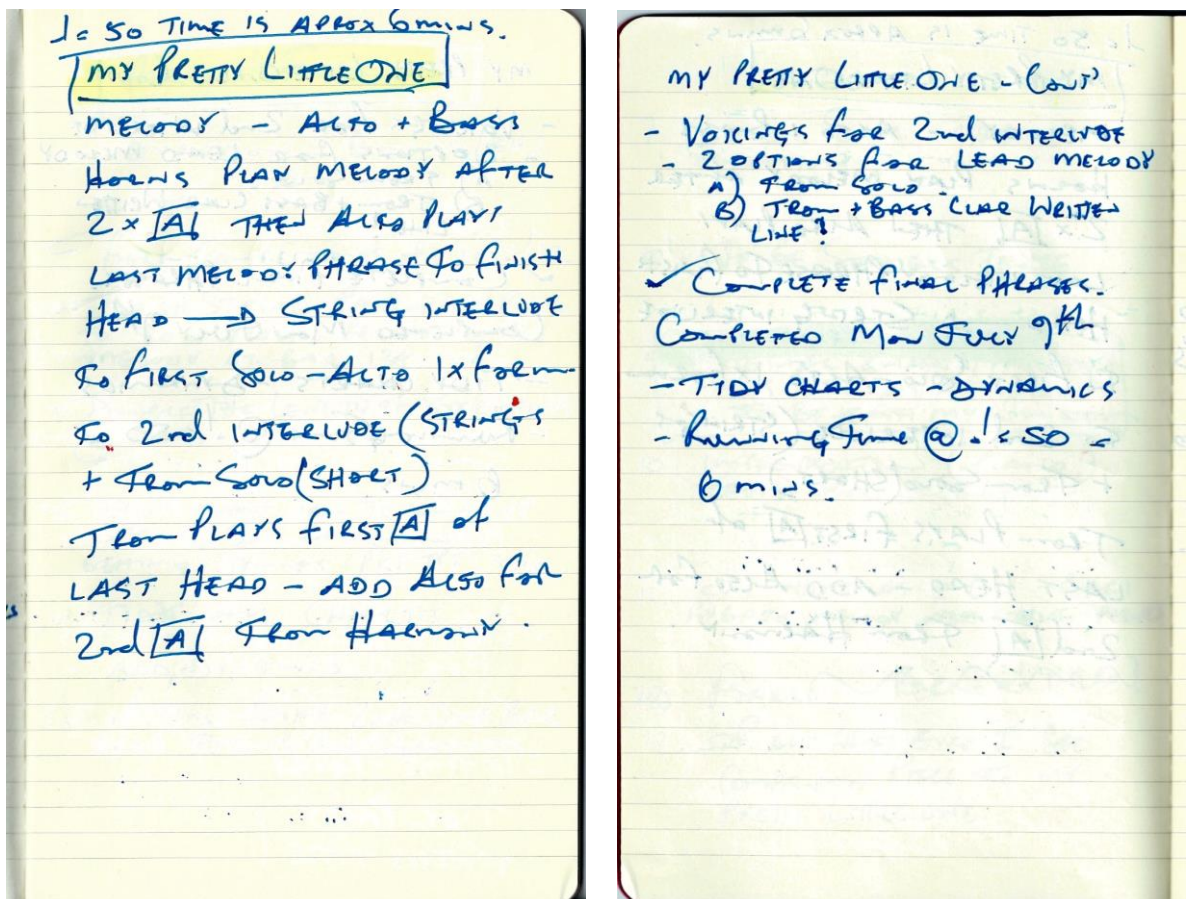 ♩= 50 TIME IS APROX 6 MINS.
MY PRETTY LITTLE ONE
MELODY - ALTO + BASS
HORNS PLAY MELODY AFTER
2 x [A] THEN ALTO PLAYS
LAST MELODY PHRASE TO FINISH
HEAD → STRING INTERLUDE
TO FIRST SOLO - ALTO 1x FORM
TO 2nd INTERLUDE (STRINGS
+ TROM SOLO (SHORT)
TROM PLAYS FIRST [A] of
LAST HEAD - ADD ALTO FOR
2nd [A] TROM HARMONY.
MY PRETTY LITTLE ONE - CONT'
- VOICINGS FOR 2nd INTERLUDE
- 2 OPTIONS FOR LEAD MELODY
A) TROM SOLO
B) TROM + BASS CLAR WRITTEN
LINE?
✓ COMPLETE FINAL PHRASES.
COMPLETED MON JULY 9th
- TIDY CHARTS - DYNAMICS
- RUNNING TIME @ ♩= 50 =
6 mins.